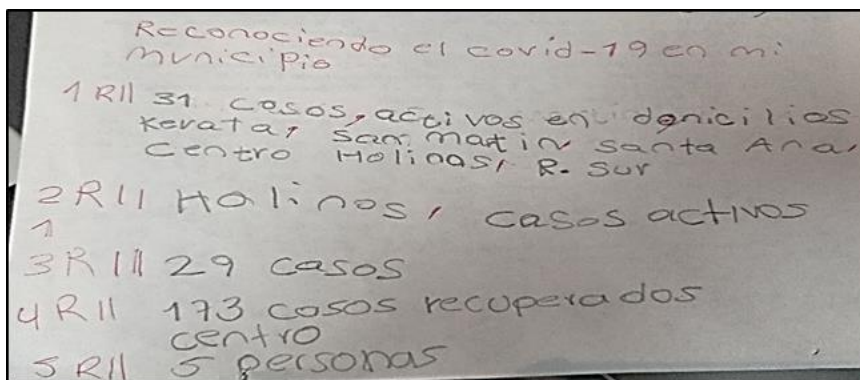 Reconociendo el covid-19 en mi
municipio
1 R// 31 casos, activos en donicilios
Kerata, San Martin Santa Ana,
Centro Holinas, R. Sur
2 R// Holinos, casos activos
1
3 R// 29 casos
4 R// 173 cosos recuperados
centro
5 R// 5 personas